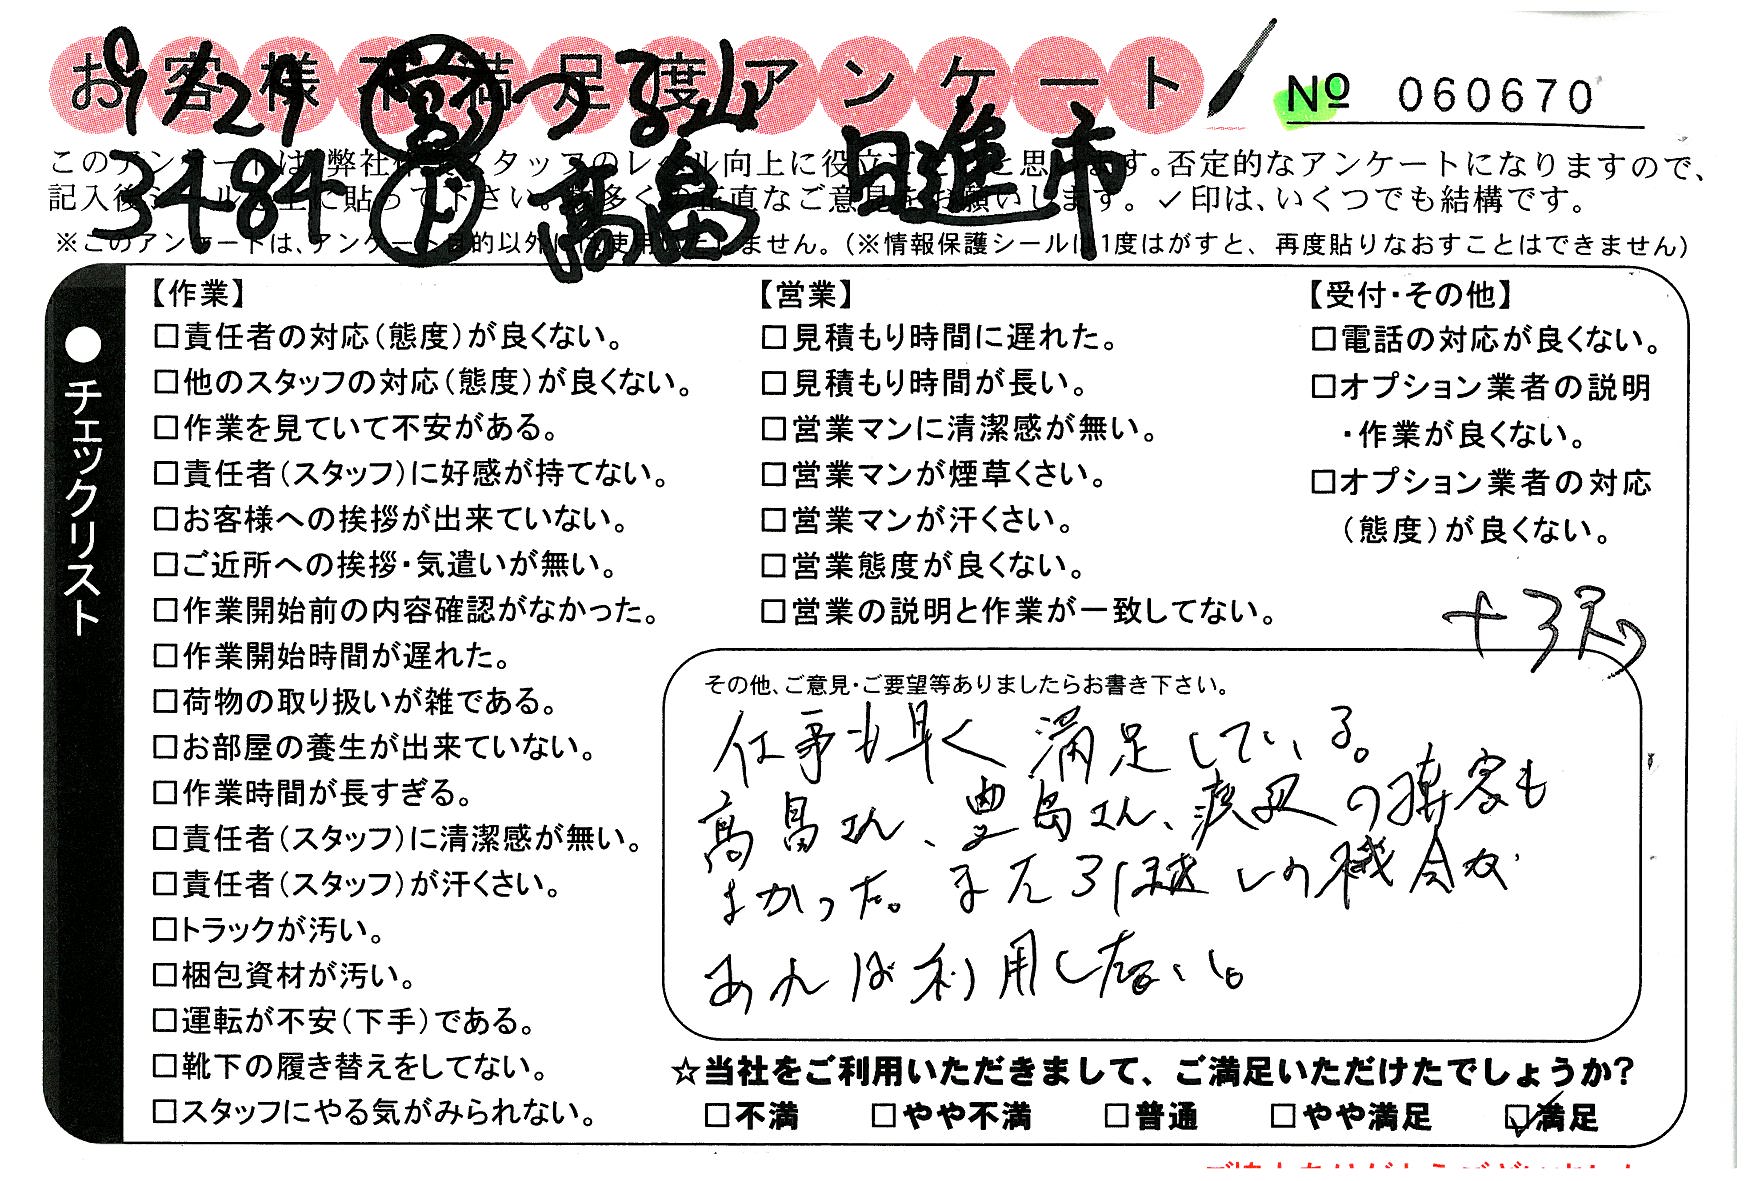 お客様不満足度アンケート
№ 060670
9/29 営 つるみ
3484 ド 高畠 日進市
このアンケートは、弊社作業スタッフのレベル向上に役立てたいと思います。否定的なアンケートになりますので、
記入後シールを上に貼って下さい。数多くの正直なご意見をお願いします。✓印は、いくつでも結構です。
※このアンケートは、アンケート目的以外には使用いたしません。(※情報保護シールは1度はがすと、再度貼りなおすことはできません)
●チェックリスト
【作業】
□責任者の対応(態度)が良くない。
□他のスタッフの対応(態度)が良くない。
□作業を見ていて不安がある。
□責任者(スタッフ)に好感が持てない。
□お客様への挨拶が出来ていない。
□ご近所への挨拶・気遣いが無い。
□作業開始前の内容確認がなかった。
□作業開始時間が遅れた。
□荷物の取り扱いが雑である。
□お部屋の養生が出来ていない。
□作業時間が長すぎる。
□責任者(スタッフ)に清潔感が無い。
□責任者(スタッフ)が汗くさい。
□トラックが汚い。
□梱包資材が汚い。
□運転が不安(下手)である。
□靴下の履き替えをしてない。
□スタッフにやる気がみられない。
【営業】
□見積もり時間に遅れた。
□見積もり時間が長い。
□営業マンに清潔感が無い。
□営業マンが煙草くさい。
□営業マンが汗くさい。
□営業態度が良くない。
□営業の説明と作業が一致してない。
【受付・その他】
□電話の対応が良くない。
□オプション業者の説明
・作業が良くない。
□オプション業者の対応
(態度)が良くない。
その他、ご意見・ご要望等ありましたらお書き下さい。
仕事も早く 満足している。
高畠さん、豊島さん、渡辺の接客も
よかった。また引越しの機会が
あれば利用したい。
☆当社をご利用いただきまして、ご満足いただけたでしょうか?
□不満 □やや不満 □普通 □やや満足 ☑満足